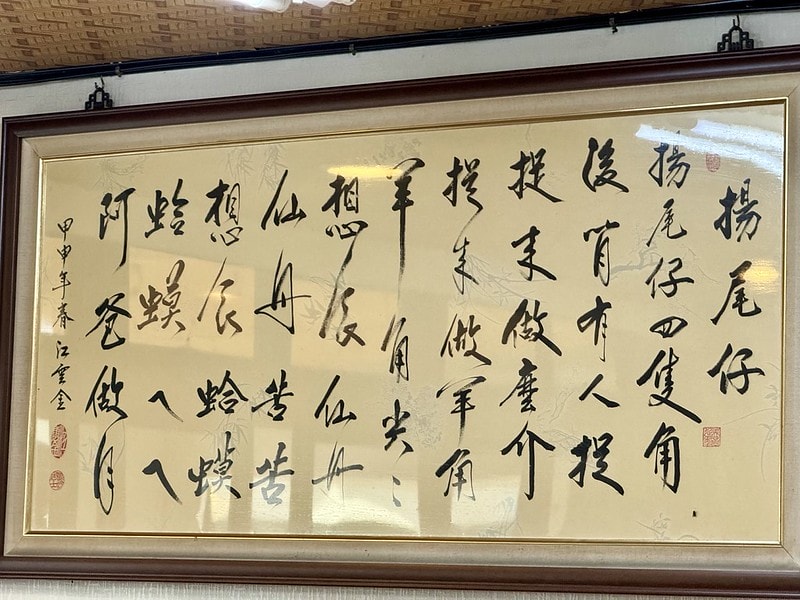 揚尾仔
揚尾仔四隻角
後背有人捉
捉來做麼介
捉來做羊角
羊角尖々
想食仙丹
仙丹苦苦
想食蛤蟆
蛤蟆ㄟㄟ
阿爸做月
甲申年春 江雲金